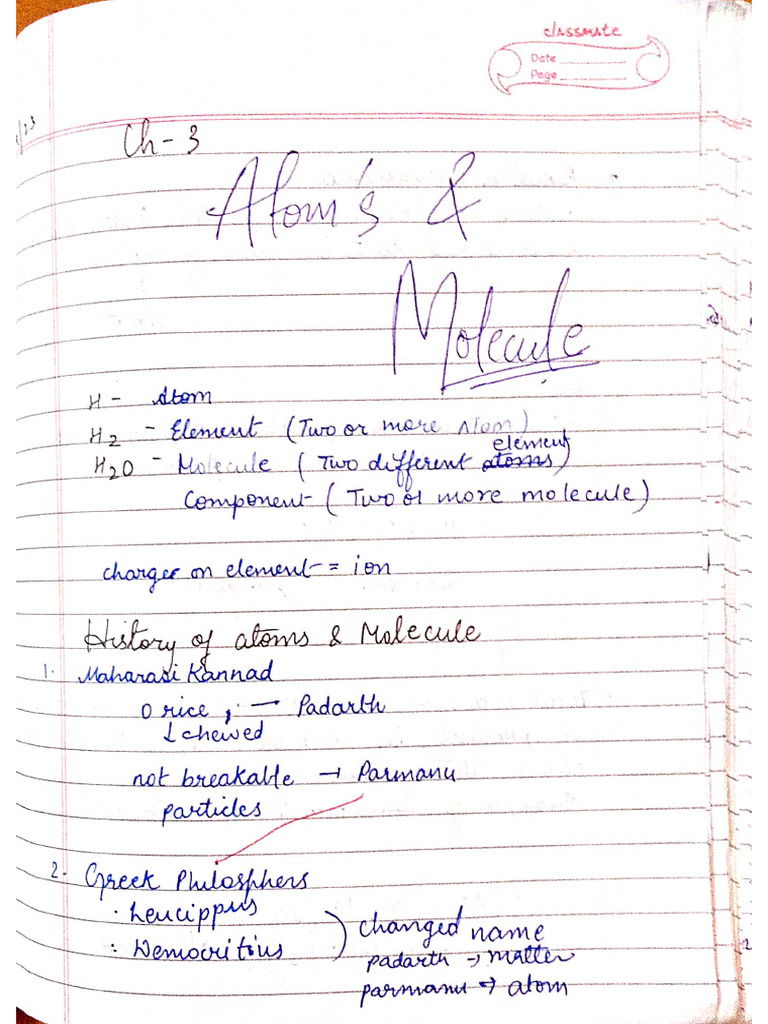 classmate
Date
Page
/23
Ch-3
Atom's &
Molecule
H - Atom
H2 - Element (Two or more Atom)
element
H2O - Molecule (Two different atoms)
Component (Two or more molecule)
charge on element = ion
History of atoms & Molecule
1. Maharasi Kannad
rice, → Padarth
↓ chewed
not breakable → Parmanu
particles
2. Greek Philosphers
· Leucippus
: Democritius
changed name
padarth → matter
parmanu → atom